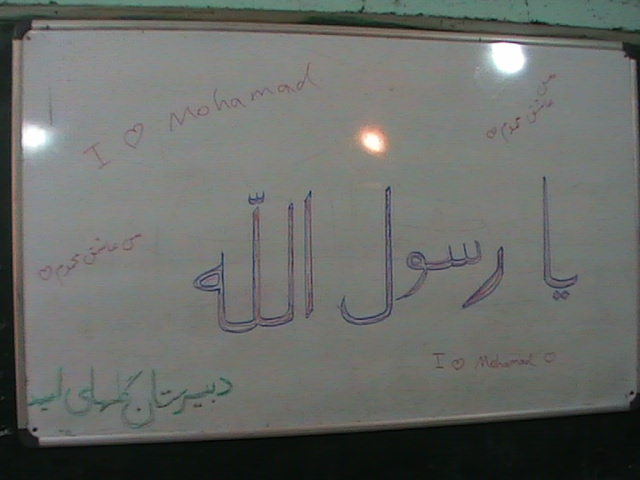 I ♡ Mohamad
من عاشق محمدم ♡
یا رسول اللّه
من عاشق محمدم ♡
I ♡ Mohamad ♡
دبیرستان گلهای امید